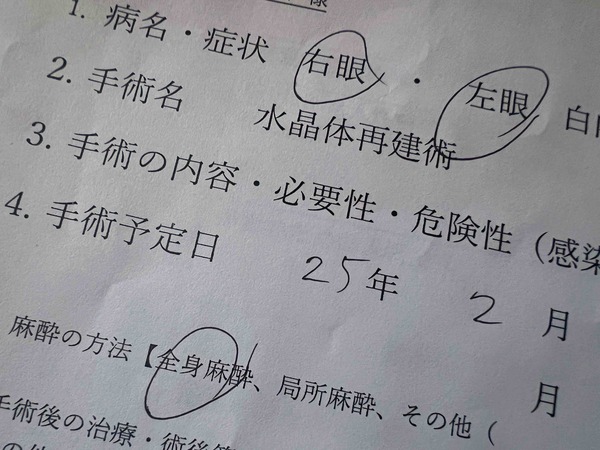 様
1. 病名・症状 右眼・左眼 白
2. 手術名 水晶体再建術
3. 手術の内容・必要性・危険性(感染
4. 手術予定日 25年 2月
月
麻酔の方法【全身麻酔、局所麻酔、その他(
手術後の治療・術後